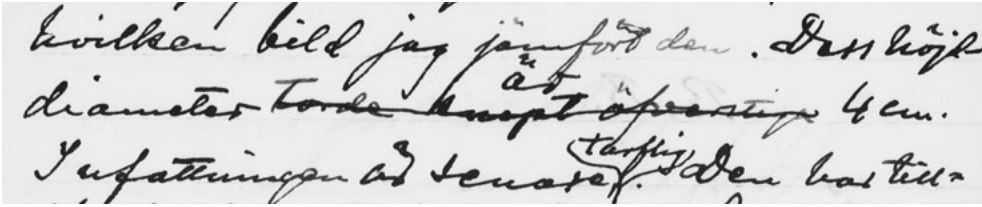 hvilken bild jag jämfört den. Dess höjd
diameter torde knapt öfverstiga är 4 cm.
Infattningen är senare, tarflig. Den har till-